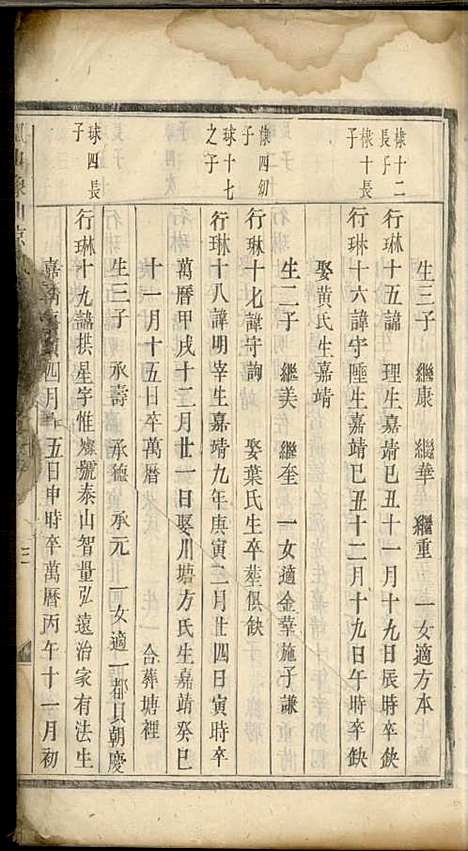 生三子 繼康 繼華 繼重 一女適方本
棣十二長子
行琳十五諱 理生嘉靖己丑十一月十九日辰時卒缺
棣十長子
行琳十六諱守陲生嘉靖己丑十二月十九日午時卒缺
娶黃氏生嘉靖
生二子 繼美 繼奎 一女適金華施子謙
棣四幼子
行琳十七諱守詢 娶葉氏生卒葬俱缺
球十七之子
行琳十八諱明宰生嘉靖九年庚寅二月廿四日寅時卒
萬曆甲戌十二月廿一日娶川塘方氏生嘉靖癸巳
十一月十五日卒萬曆 合葬塘裡
生三子 承壽 承德 承元 一女適一都貝朝慶
球四長子
行琳十九諱拱星字惟燦號泰山智量弘遠治家有法生
嘉靖 寅四月 五日申時卒萬曆丙午十一月初